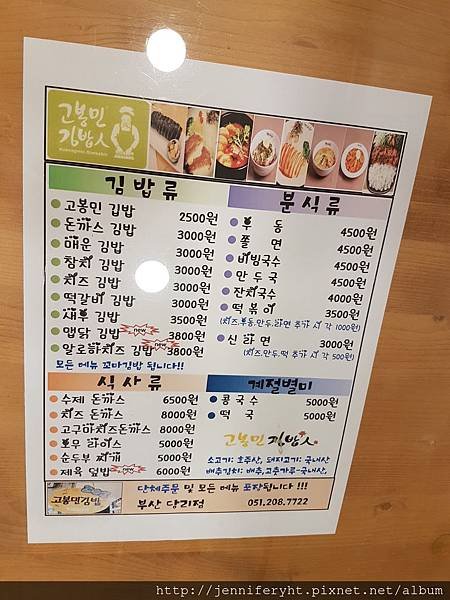 고봉민
김밥人
김밥류
고봉민 김밥 2500원
돈까스 김밥 3000원
매운 김밥 3000원
참치 김밥 3000원
치즈 김밥 3000원
떡갈비 김밥 3000원
새우 김밥 3500원
맵닭 김밥 new 3800원
알로하치즈 김밥 new 3800원
모든 메뉴 꼬마김밥 됩니다!!
분식류
우동 4500원
쫄면 4500원
비빔국수 4500원
만두국 4500원
잔치국수 4000원
떡볶이 3500원
(치즈,우동,만두,라면 추가 시 각 1000원)
신라면 3000원
(치즈,만두,떡 추가 시 각 500원)
식사류
수제 돈까스 6500원
치즈 돈까스 8000원
고구마치즈돈까스 8000원
오무 라이스 5000원
순두부 찌개 5000원
제육 덮밥 new 6000원
계절별미
콩국수 5000원
떡국 5000원
고봉민김밥人
소고기: 호주산, 돼지고기: 국내산
배추김치: 배추,고춧가루-국내산,
고봉민김밥
단체주문 및 모든 메뉴 포장됩니다!!!
부산 당리점 051.208.7722
http://jenniferyht.pixnet.net/album